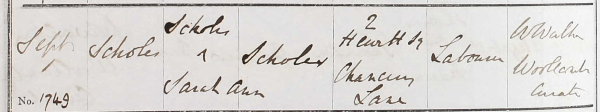 Sept
Scholes
Scholes
Sarah Ann
Scholes
2
Hewitt Sq
Chancery
Lane
Labourer
W Walter
Woollcomb
Curate
No. 1749